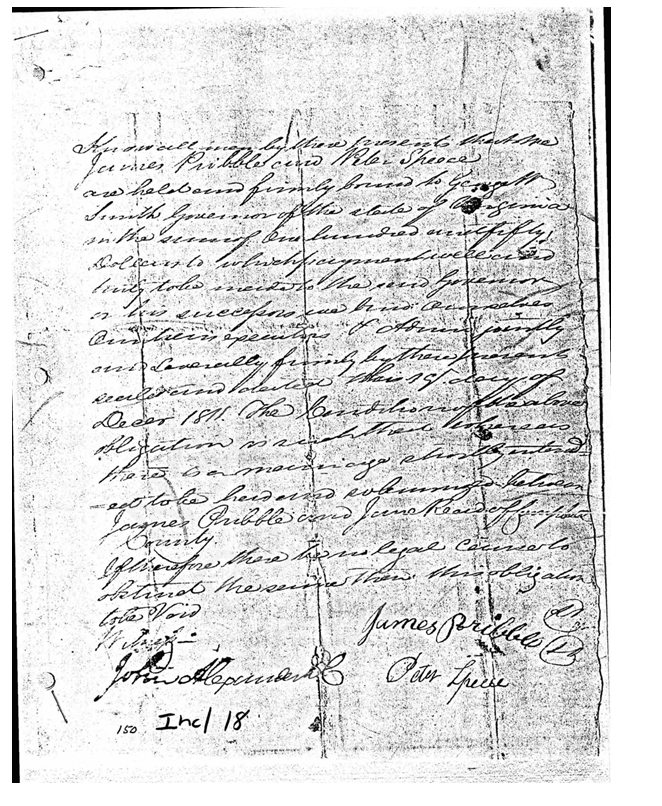 Know all men by these presents that We
James Pribble and Peter Speece
are held and firmly bound to George W
Smith Governor of the state of Virginia
in the sum of One hundred and fifty
Dollars to which payment well and
truly to be made to the said Governor
or his successors we bind Ourselves
Our heirs executors & Admrs jointly
and Severally firmly by these presents
sealed and dated this day of
Decer 1811. The Condition of the above
obligation is such that whereas
there is a marriage shortly intend
=ed to be had and solemnized between
James Pribble and Jane Read of
County.
If therefore there be no legal cause to
obstruct the same then this obligation
to be Void
James Pribble
John Alexander
Peter Speece
150 Inc/ 18